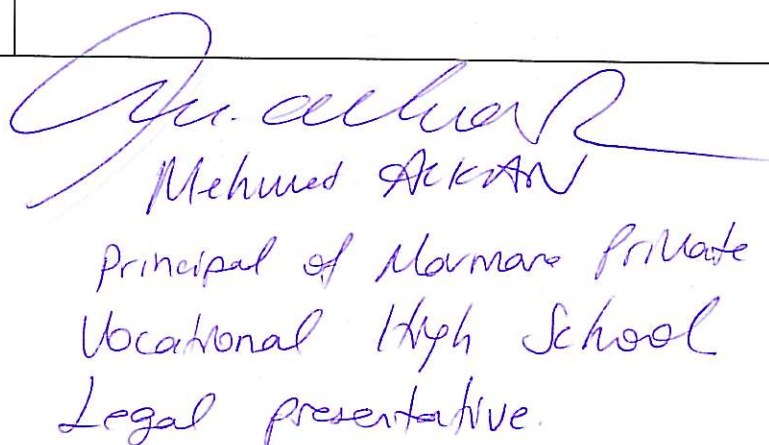 Mehmed ALKAN
Principal of Marmara Private
Vocational High School
Legal presentative.